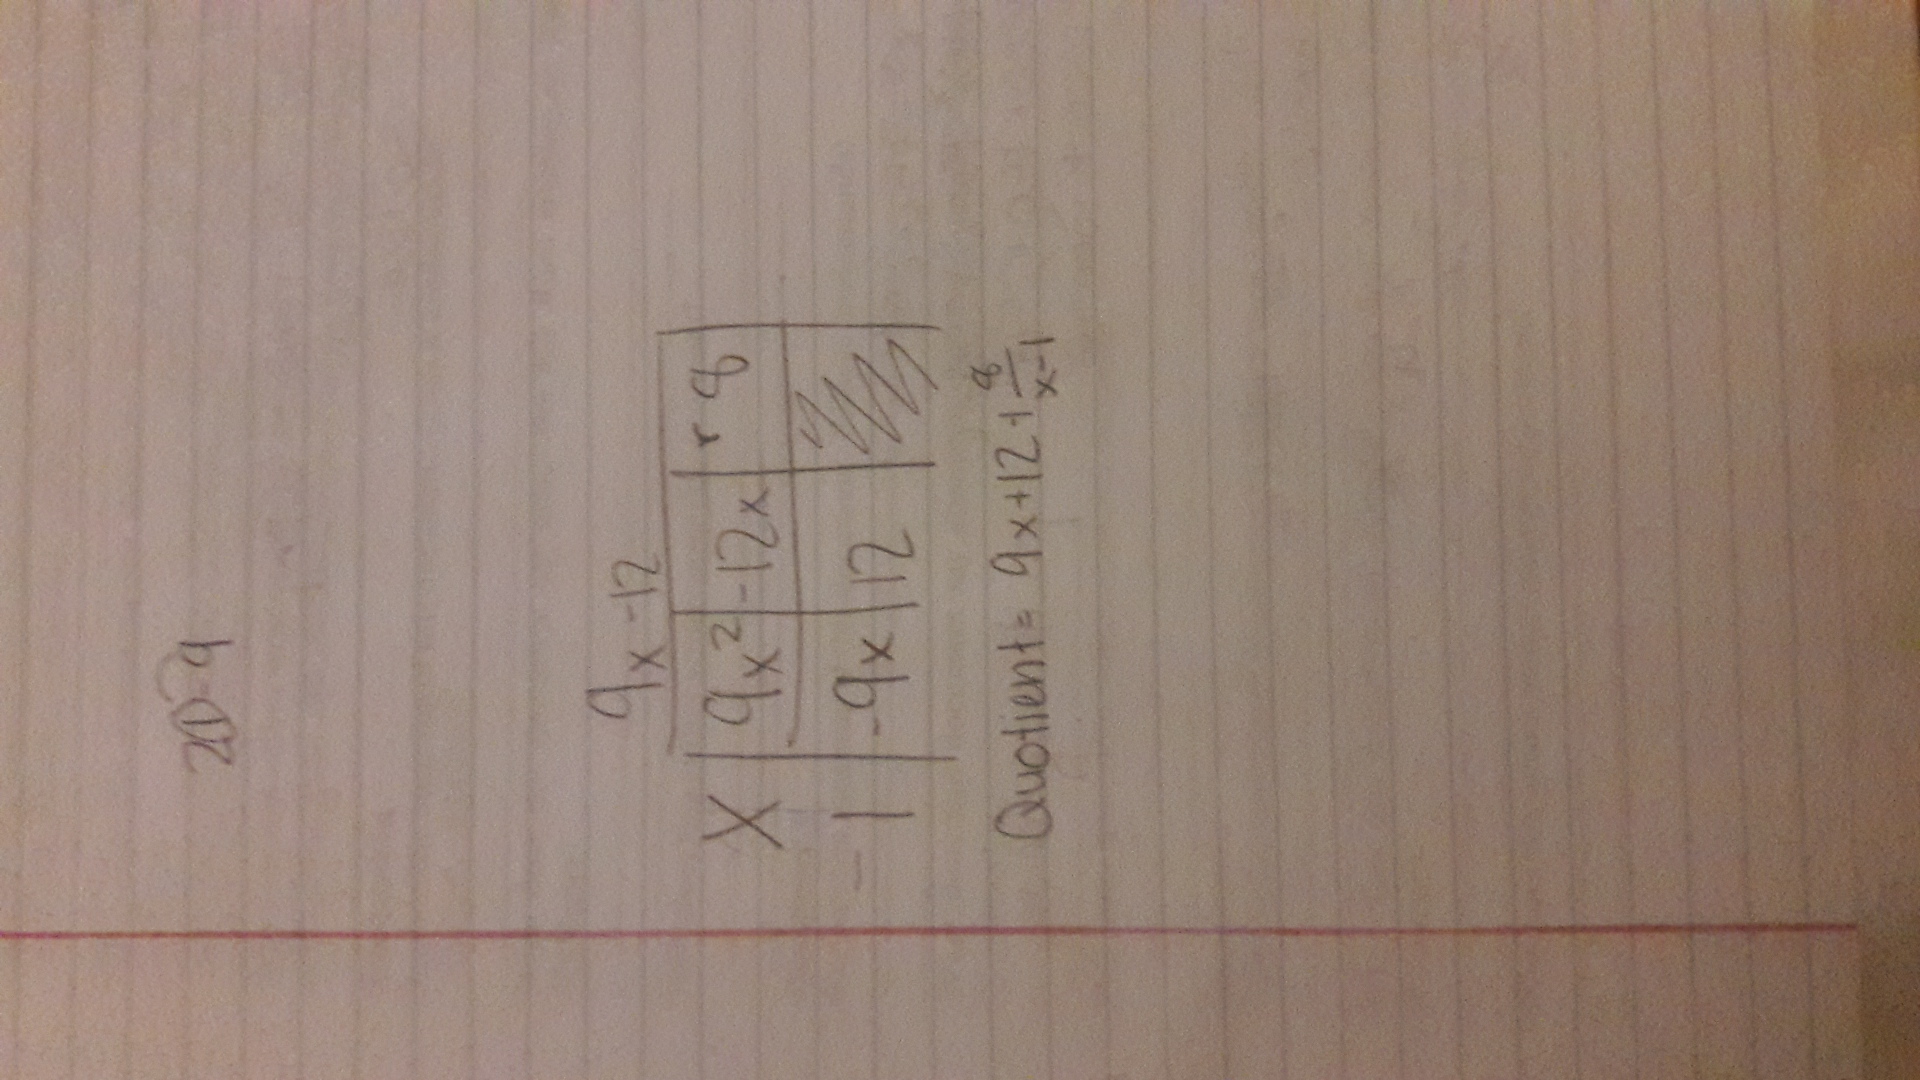 2D-9
9x -12
X 9x² -12x r 8
-1 -9x 12
Quotient = 9x+12+ 8/x-1